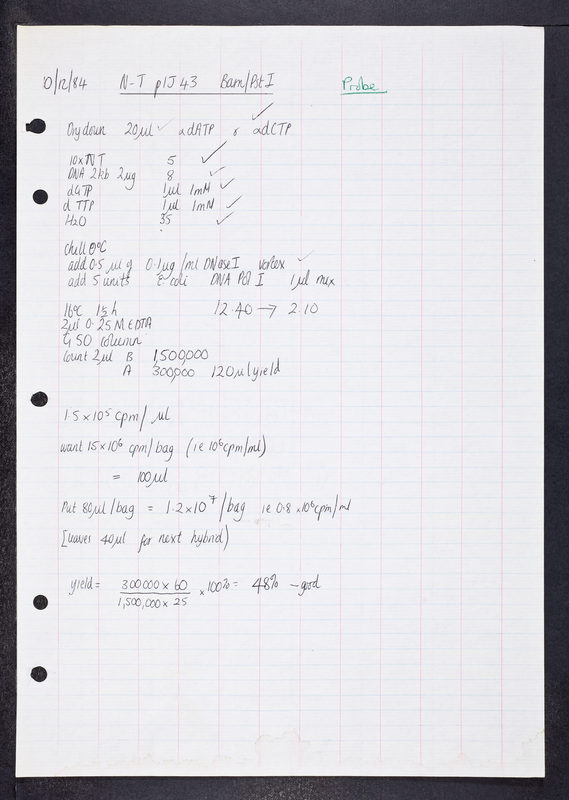 10/12/84 N-T pIJ43 Bam/Pst I Probe
Dry down 20µl ✓ αdATP & αdCTP ✓
10xNT 5 ✓
DNA 2kb 2µg 8 ✓
dGTP 1µl 1mM ✓
dTTP 1µl 1mM ✓
H2O 35 ✓
Chill 0°C
add 0.5 µl of 0.1µg/ml DNaseI vortex ✓
add 5 units E. coli DNA Pol I 1µl mix
16°C 1.5h 12.40 → 2.10
2µl 0.25M EDTA
G50 column
Count 2µl B 1,500,000
A 300,000 120µl yield
1.5 x 10⁵ cpm/µl
want 15x10⁶ cpm/bag (ie 10⁶cpm/ml)
= 100µl
Put 80µl/bag = 1.2x10⁷/bag ie 0.8 x10⁶cpm/ml
[leaves 40µl for next hybrid)
yield = 300000 x 60 / 1,500,000 x 25 x 100% = 48% - good